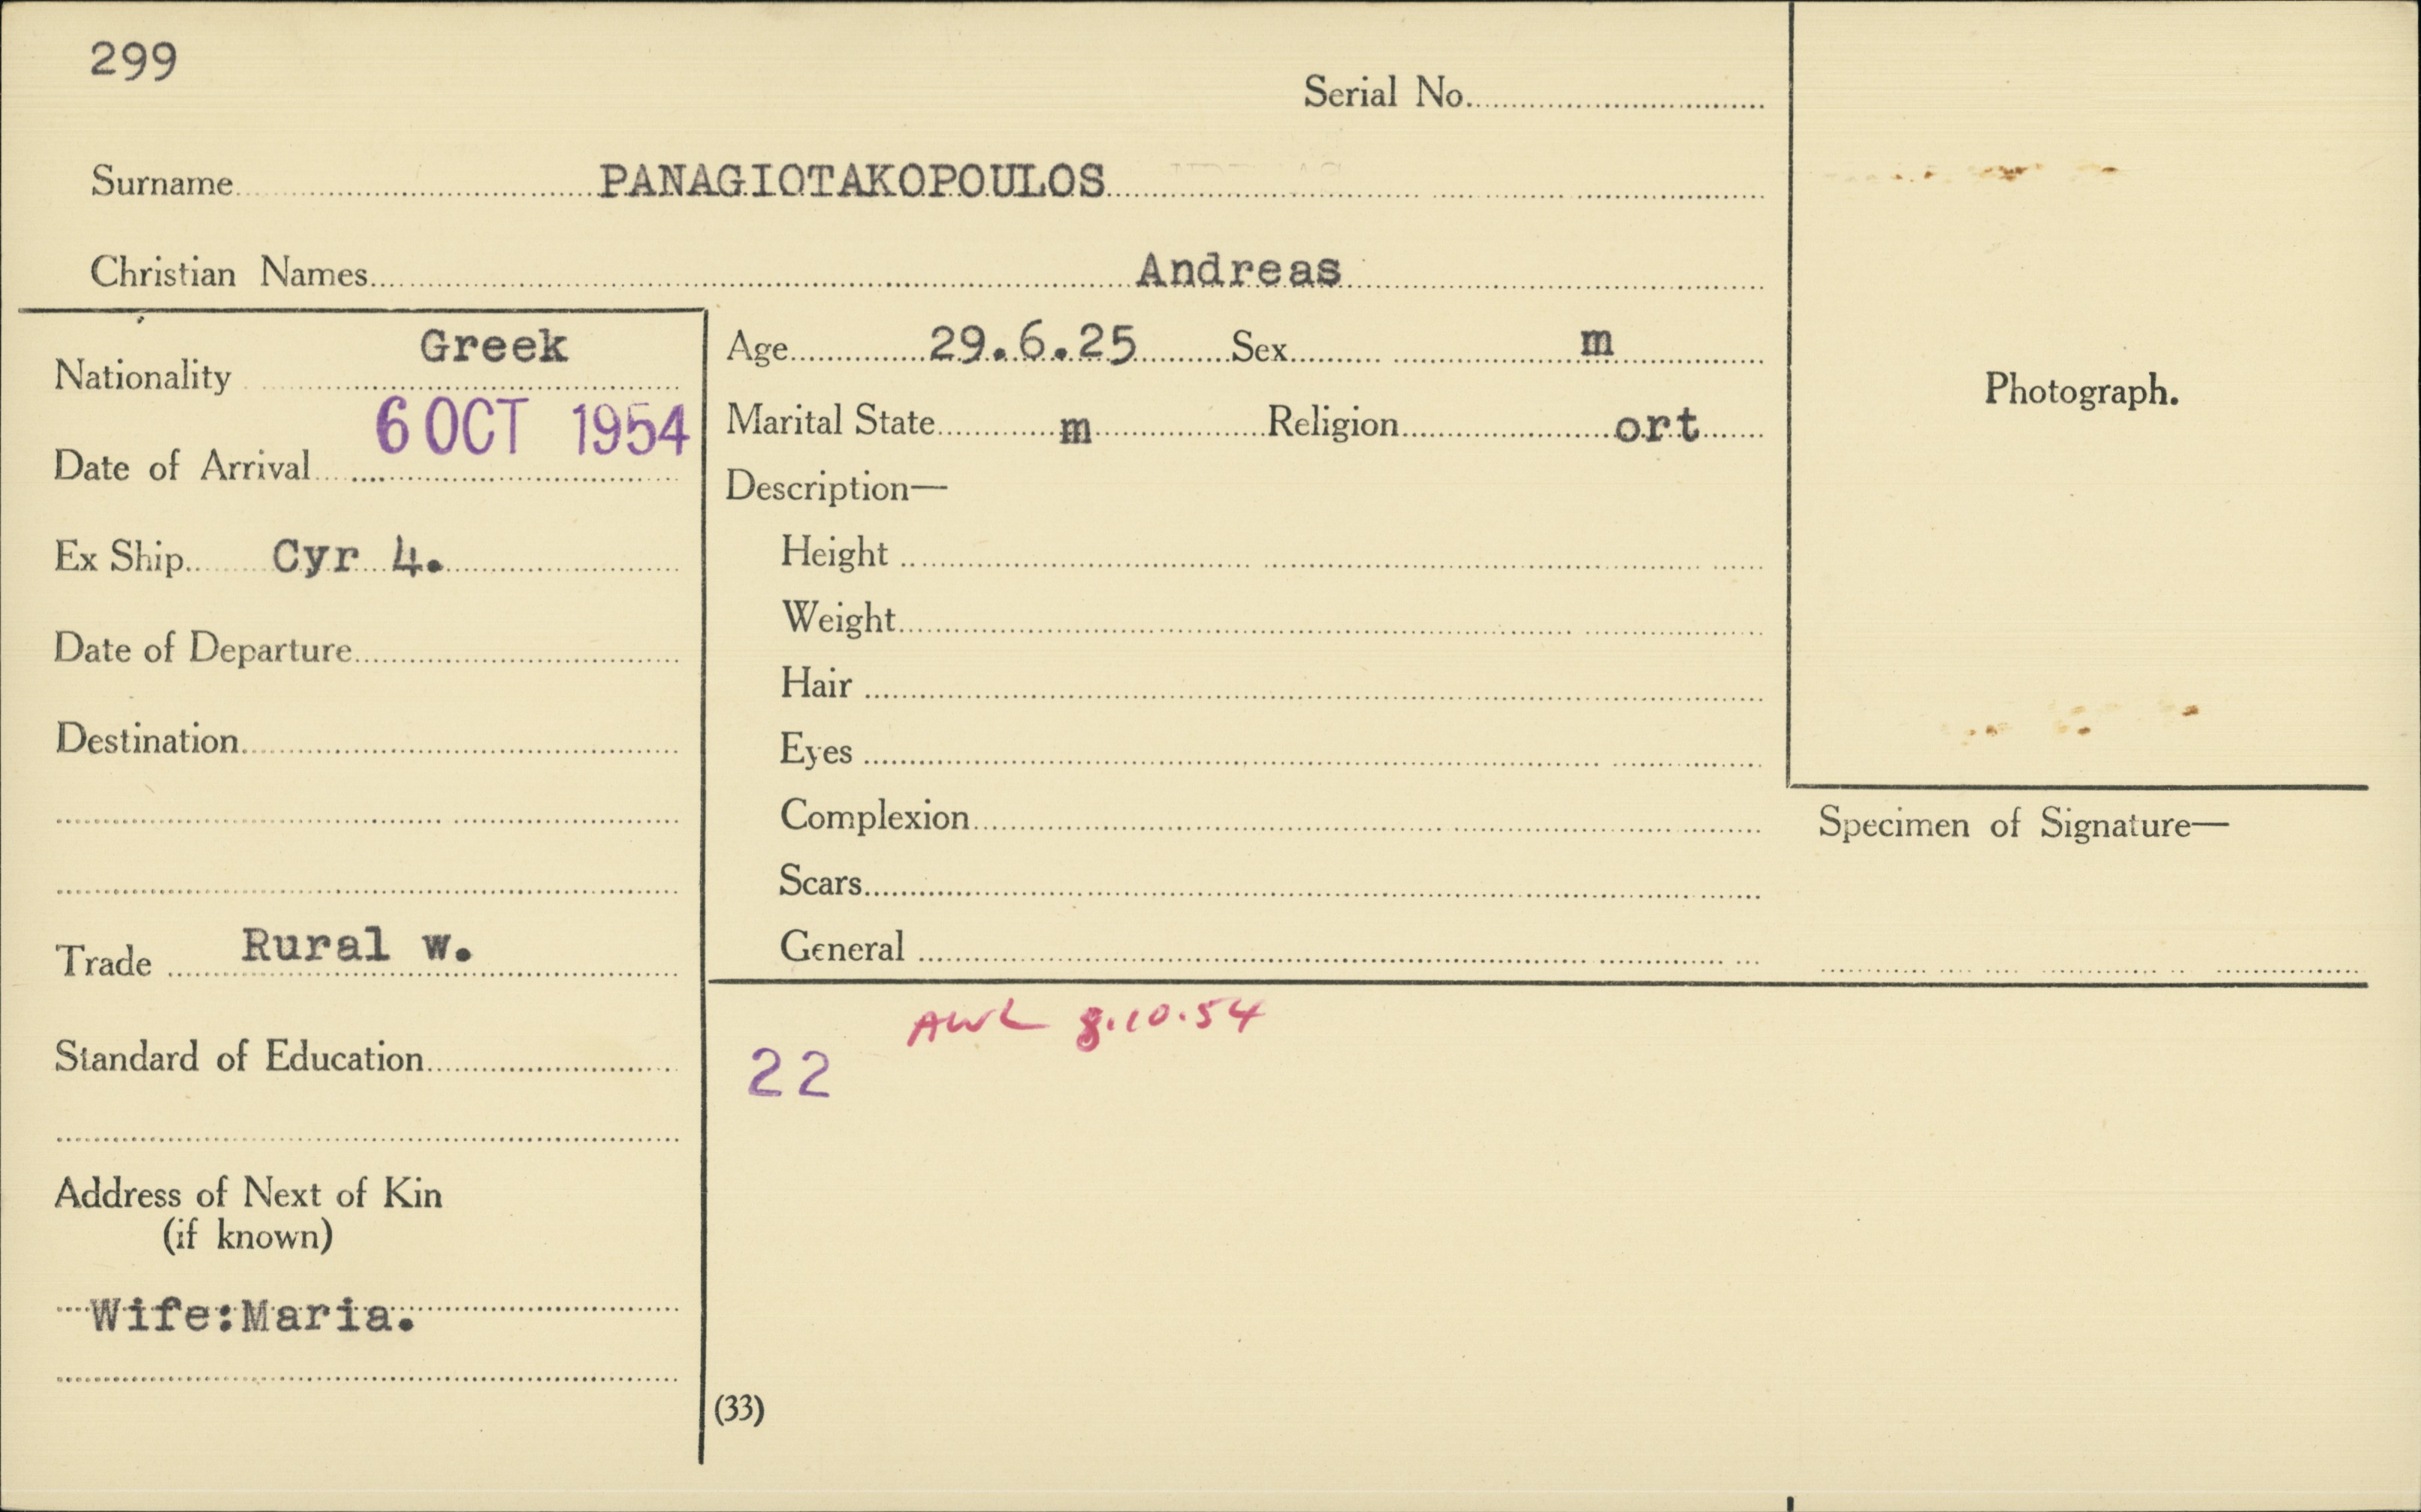 299
Serial No.
Surname PANAGIOTAKOPOULOS
Christian Names Andreas
Nationality Greek
Date of Arrival 6 OCT 1954
Ex Ship Cyr 4.
Date of Departure
Destination
Trade Rural w.
Standard of Education
Address of Next of Kin
(if known)
Wife:Maria.
Age 29.6.25 Sex m
Marital State m Religion ort
Description—
Height
Weight
Hair
Eyes
Complexion
Scars
General
Photograph.
Specimen of Signature—
AWL 8.10.54
22
(33)